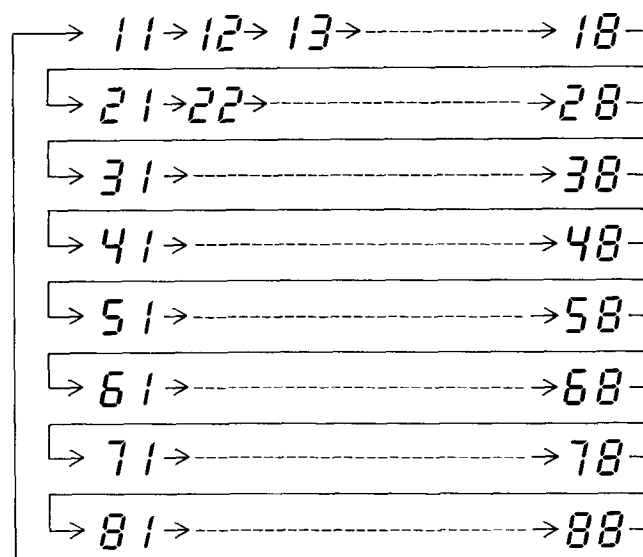 11 12 13 18
21 22 28
31 38
41 48
51 58
61 68
71 78
81 88